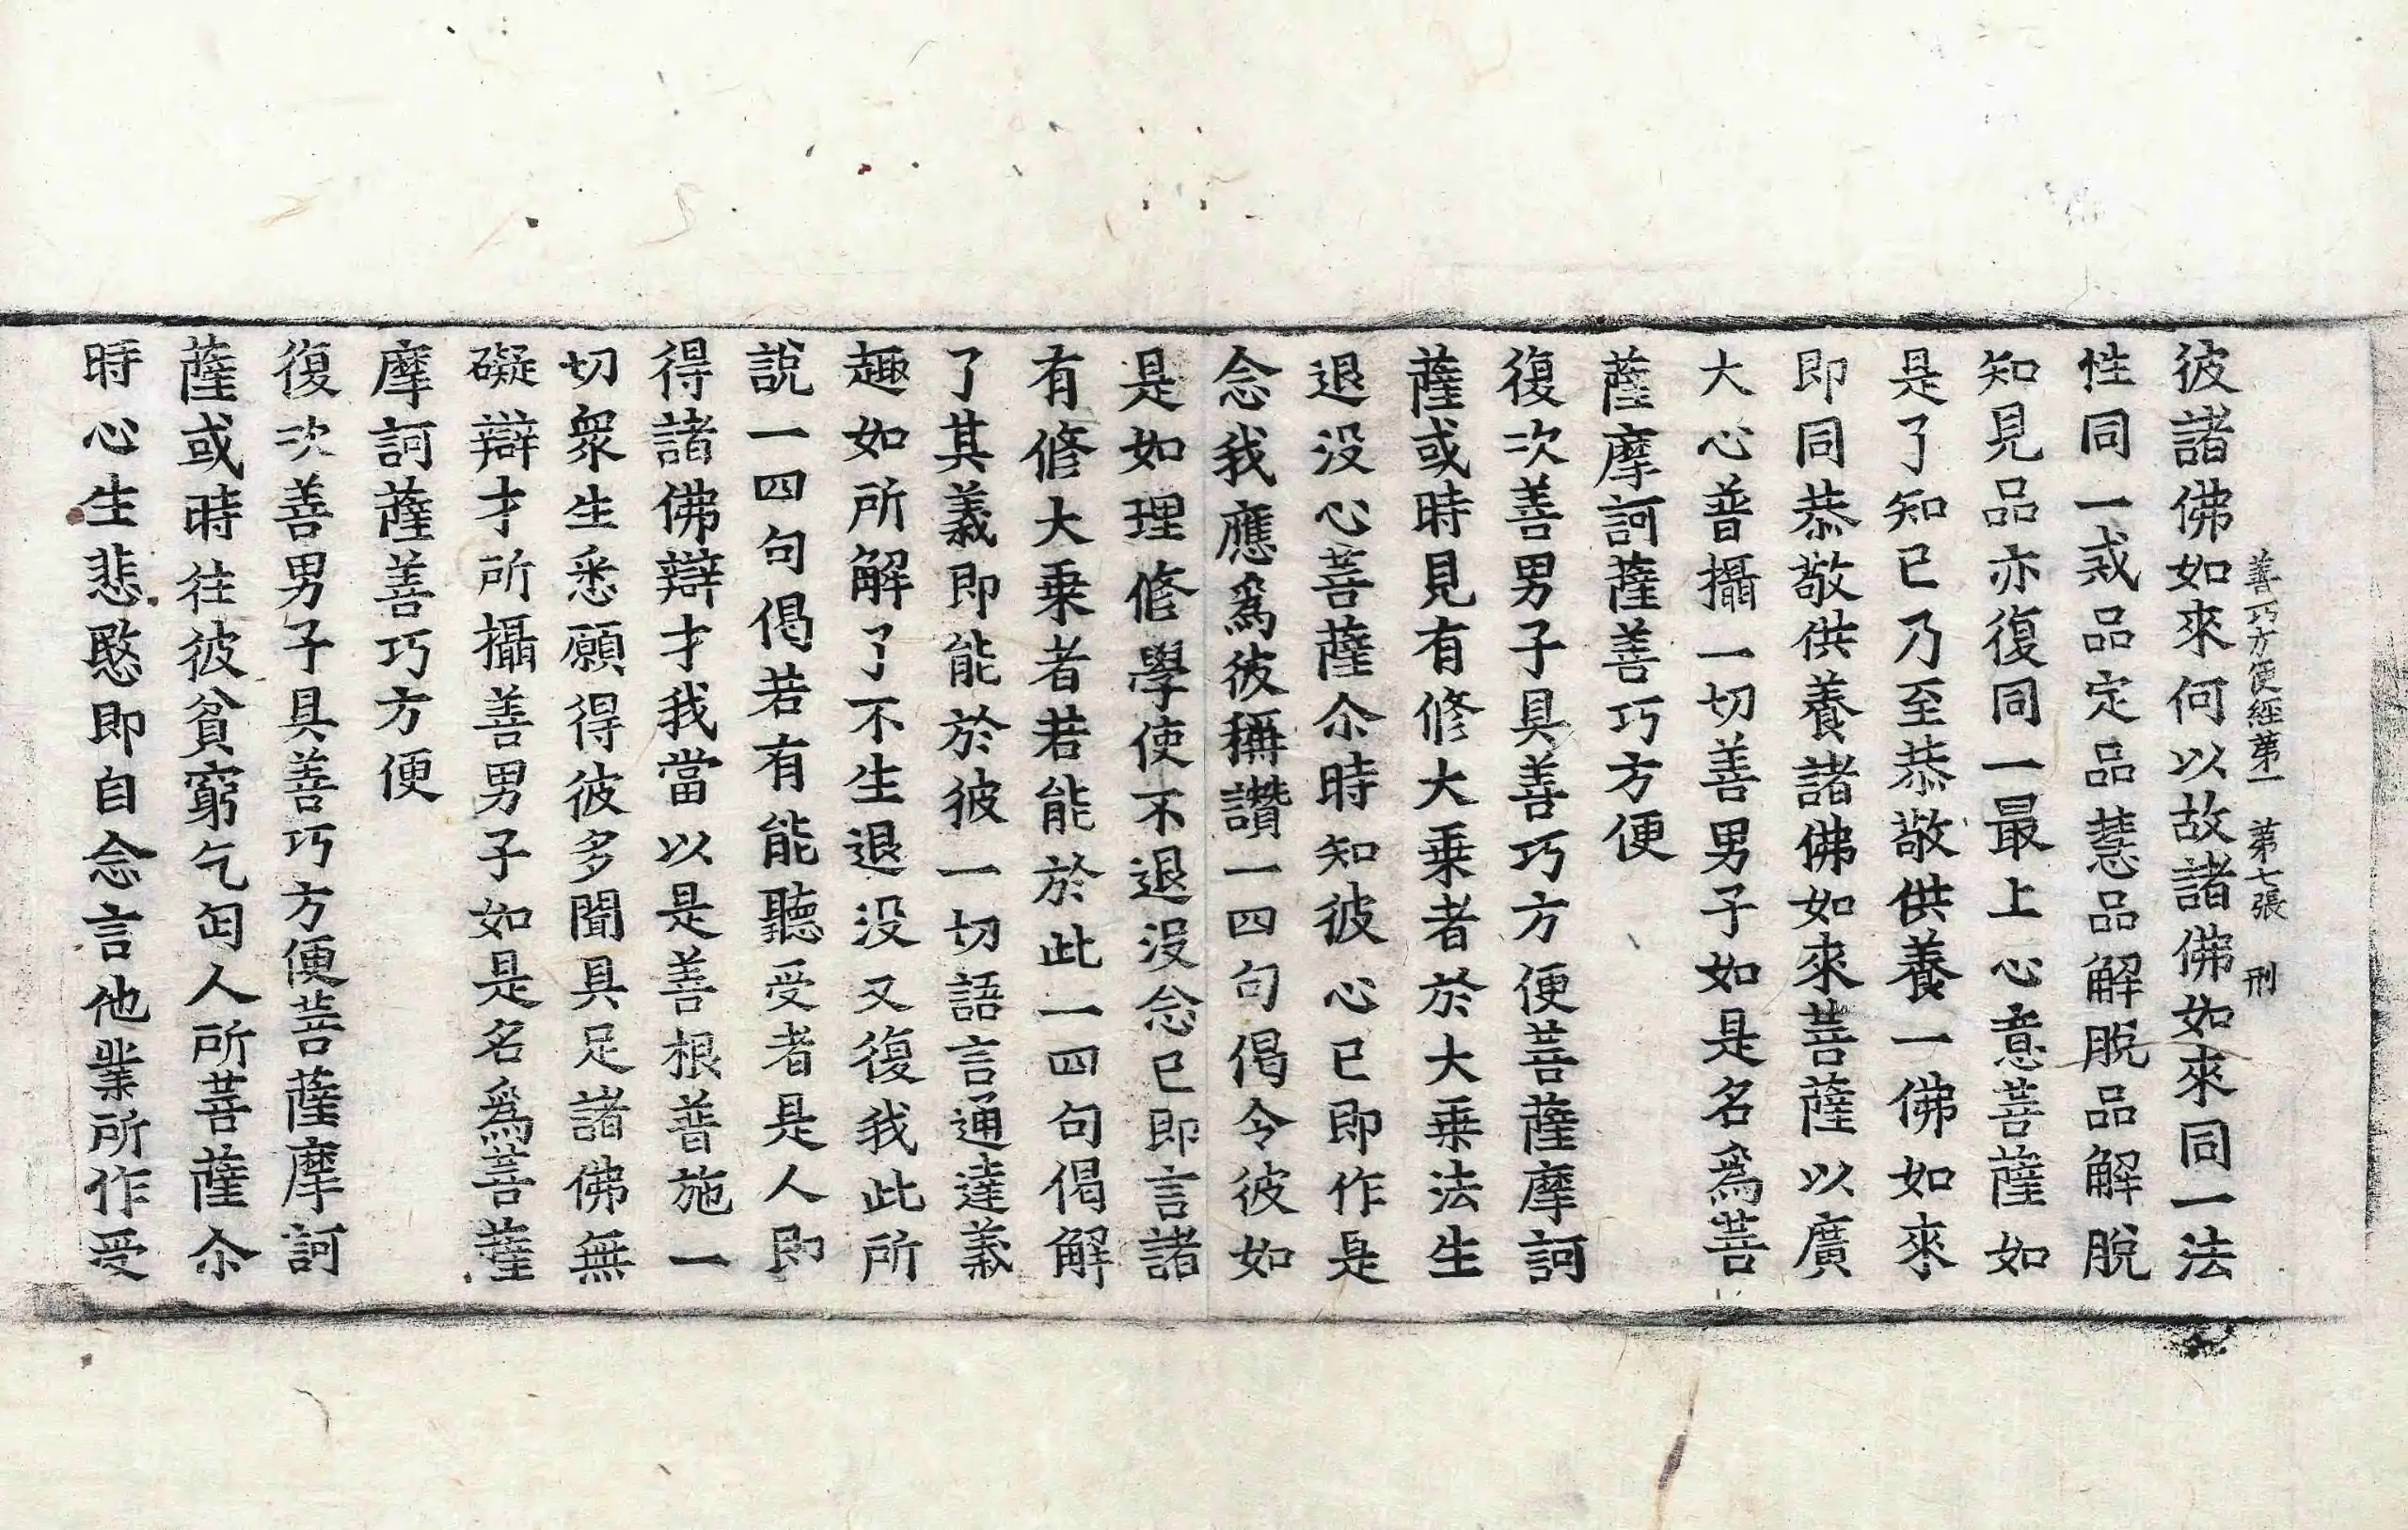 善巧方便經第一 第七張 刑
彼諸佛如來何以故諸佛如來同一法
性同一戒品定品慧品解脫品解脫
知見品亦復同一最上心意菩薩如
是了知已乃至恭敬供養一佛如來
即同恭敬供養諸佛如來菩薩以廣
大心普攝一切善男子如是名爲菩
薩摩訶薩善巧方便
復次善男子具善巧方便菩薩摩訶
薩或時見有修大乗者於大乗法生
退没心菩薩尒時知彼心已即作是
念我應爲彼稱讚一四句偈令彼如
是如理修學使不退没念已即言諸
有修大乗者若能於此一四句偈解
了其義即能於彼一切語言通達義
趣如所解了不生退没又復我此所
說一四句偈若有能聽受者是人即
得諸佛辯才我當以是善根普施一
切衆生悉願得彼多聞具足諸佛無
礙辯才所攝善男子如是名爲菩薩
摩訶薩善巧方便
復次善男子具善巧方便菩薩摩訶
薩或時往彼貧窮乞匃人所菩薩尒
時心生悲愍即自念言他業所作受